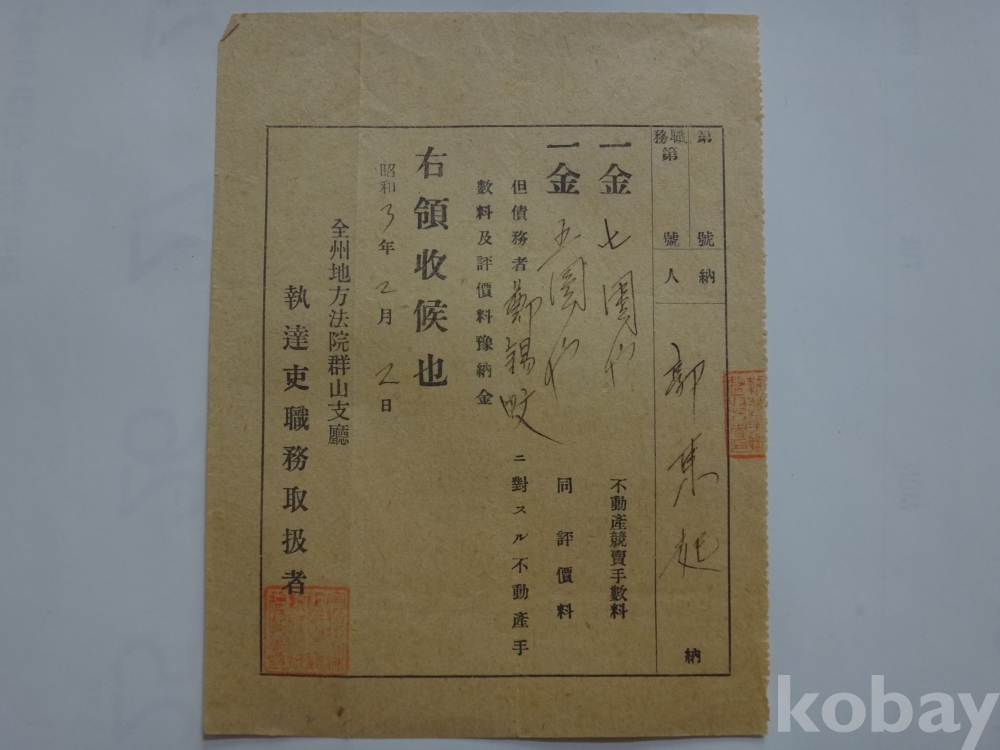 第 號
職務第 號
納人 郭東起 納
一金 七圓也 不動産競賣手數料
一金 五圓也 同評價料
但債務者 鄭錫 ニ對スル不動産手
數料及評價料豫納金
右領收候也
昭和3年2月2日
全州地方法院群山支廳
執達吏職務取扱者
kobay